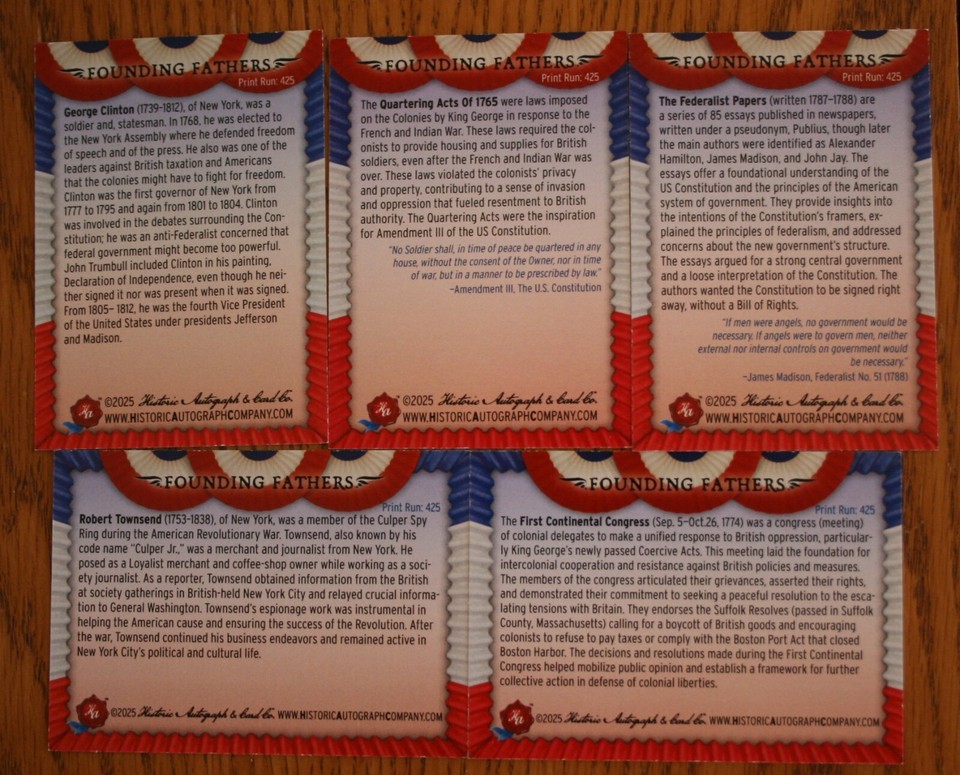 FOUNDING FATHERS
Print Run: 425
George Clinton (1739-1812), of New York, was a
soldier and, statesman. In 1768, he was elected to
the New York Assembly where he defended freedom
of speech and of the press. He also was one of the
leaders against British taxation and Americans
that the colonies might have to fight for freedom.
Clinton was the first governor of New York from
1777 to 1795 and again from 1801 to 1804. Clinton
was involved in the debates surrounding the Con-
stitution; he was an anti-Federalist concerned that
federal government might become too powerful.
John Trumbull included Clinton in his painting,
Declaration of Independence, even though he nei-
ther signed it nor was present when it was signed.
From 1805– 1812, he was the fourth Vice President
of the United States under presidents Jefferson
and Madison.
Ha
©2025 Historic Autograph & Card Co.
WWW.HISTORICAUTOGRAPHCOMPANY.COM
FOUNDING FATHERS
Print Run: 425
The Quartering Acts Of 1765 were laws imposed
on the Colonies by King George in response to the
French and Indian War. These laws required the col-
onists to provide housing and supplies for British
soldiers, even after the French and Indian War was
over. These laws violated the colonists' privacy
and property, contributing to a sense of invasion
and oppression that fueled resentment to British
authority. The Quartering Acts were the inspiration
for Amendment III of the US Constitution.
"No Soldier shall, in time of peace be quartered in any
house, without the consent of the Owner, nor in time
of war, but in a manner to be prescribed by law."
–Amendment III, The U.S. Constitution
Ha
©2025 Historic Autograph & Card Co.
WWW.HISTORICAUTOGRAPHCOMPANY.COM
FOUNDING FATHERS
Print Run: 425
The Federalist Papers (written 1787–1788) are
a series of 85 essays published in newspapers,
written under a pseudonym, Publius, though later
the main authors were identified as Alexander
Hamilton, James Madison, and John Jay. The
essays offer a foundational understanding of the
US Constitution and the principles of the American
system of government. They provide insights into
the intentions of the Constitution's framers, ex-
plained the principles of federalism, and addressed
concerns about the new government's structure.
The essays argued for a strong central government
and a loose interpretation of the Constitution. The
authors wanted the Constitution to be signed right
away, without a Bill of Rights.
"If men were angels, no government would be
necessary. If angels were to govern men, neither
external nor internal controls on government would
be necessary."
–James Madison, Federalist No. 51 (1788)
Ha
©2025 Historic Autograph & Card Co.
WWW.HISTORICAUTOGRAPHCOMPANY.COM
FOUNDING FATHERS
Print Run: 425
Robert Townsend (1753-1838), of New York, was a member of the Culper Spy
Ring during the American Revolutionary War. Townsend, also known by his
code name "Culper Jr.," was a merchant and journalist from New York. He
posed as a Loyalist merchant and coffee-shop owner while working as a soci-
ety journalist. As a reporter, Townsend obtained information from the British
at society gatherings in British-held New York City and relayed crucial informa-
tion to General Washington. Townsend's espionage work was instrumental in
helping the American cause and ensuring the success of the Revolution. After
the war, Townsend continued his business endeavors and remained active in
New York City's political and cultural life.
Ha
©2025 Historic Autograph & Card Co. WWW.HISTORICAUTOGRAPHCOMPANY.COM
FOUNDING FATHERS
Print Run: 425
The First Continental Congress (Sep. 5–Oct.26, 1774) was a congress (meeting)
of colonial delegates to make a unified response to British oppression, particular-
ly King George's newly passed Coercive Acts. This meeting laid the foundation for
intercolonial cooperation and resistance against British policies and measures.
The members of the congress articulated their grievances, asserted their rights,
and demonstrated their commitment to seeking a peaceful resolution to the esca-
lating tensions with Britain. They endorses the Suffolk Resolves (passed in Suffolk
County, Massachusetts) calling for a boycott of British goods and encouraging
colonists to refuse to pay taxes or comply with the Boston Port Act that closed
Boston Harbor. The decisions and resolutions made during the First Continental
Congress helped mobilize public opinion and establish a framework for further
collective action in defense of colonial liberties.
Ha
©2025 Historic Autograph & Card Co. WWW.HISTORICAUTOGRAPHCOMPANY.COM